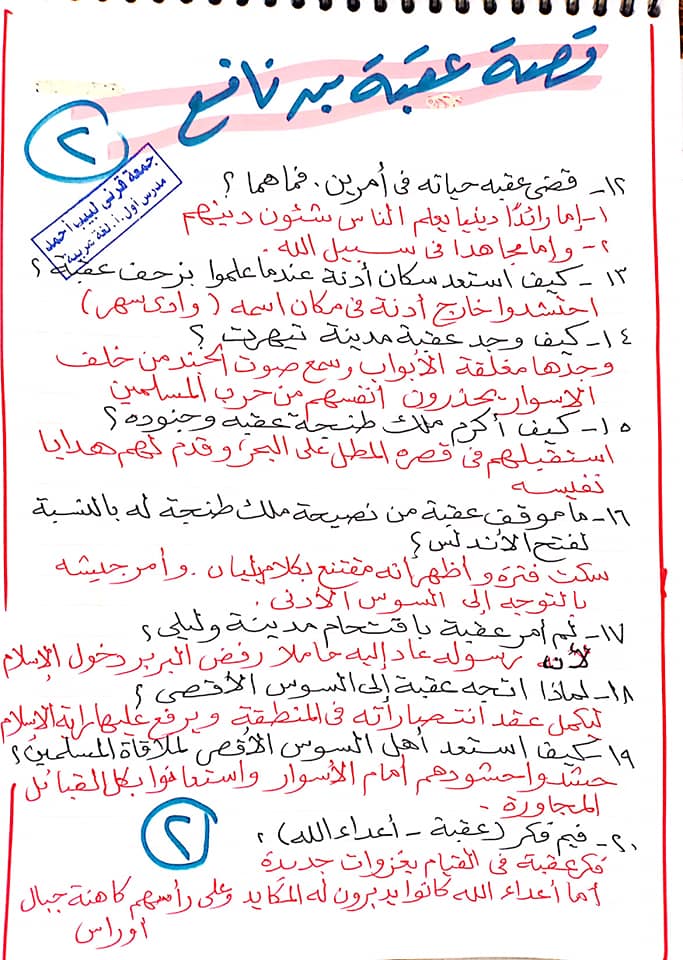 قصة عقبة بن نافع
٢
جمعة قرنى لبيب أحمد
مدرس أول أ. لغة عربية
١٢- قضى عقبه حياته فى أمرين. فماهما ؟
١- إما رائدًا دينيا يعلم الناس شئون دينهم
٢- وإما مجاهدا فى سبيل الله .
١٣- كيف استعد سكان أدنة عندما علموا بزحف عقبة ؟
احتشدوا خارج أدنة فى مكان اسمه ( وادى سهر )
١٤- كيف وجد عقبة مدينة تيهرت ؟
وجدها مغلقة الأبواب وسمع صوت الجند من خلف
الاسوار يحذرون أنفسهم من حرب المسلمين
١٥- كيف أكرم ملك طنجة عقبه وجنوده ؟
استقبلهم فى قصره المطل على البحر وقدم لهم هدايا
نفيسه
١٦- ما موقف عقبة من نصيحة ملك طنجة له بالنسبة
لفتح الأندلس ؟
سكت فترة وأظهر أنه مقتنع بكلام ليليان . وأمر جيشه
بالتوجه إلى السوس الأدنى .
١٧- لم أمر عقبة باقتحام مدينة وليلى ؟
لأنه رسوله عاد إليه حاملا رفض البربر دخول الإسلام
١٨- لماذا اتجه عقبة إلى السوس الأقصى ؟
ليكمل عقد انتصاراته فى المنطقة ويرفع عليها راية الإسلام
١٩- كيف استعد أهل السوس الأقصى لملاقاة المسلمين ؟
حشدوا حشودهم أمام الأسوار واستعانوا بكل القبائل
المجاورة .
٢٠- فيم فكر ( عقبة - أعداء الله ) ؟
فكر عقبة فى القيام بغزوات جديدة
أما أعداء الله كانوا يدبرون له المكايد وعلى رأسهم كاهنة جبال
أوراس
٢